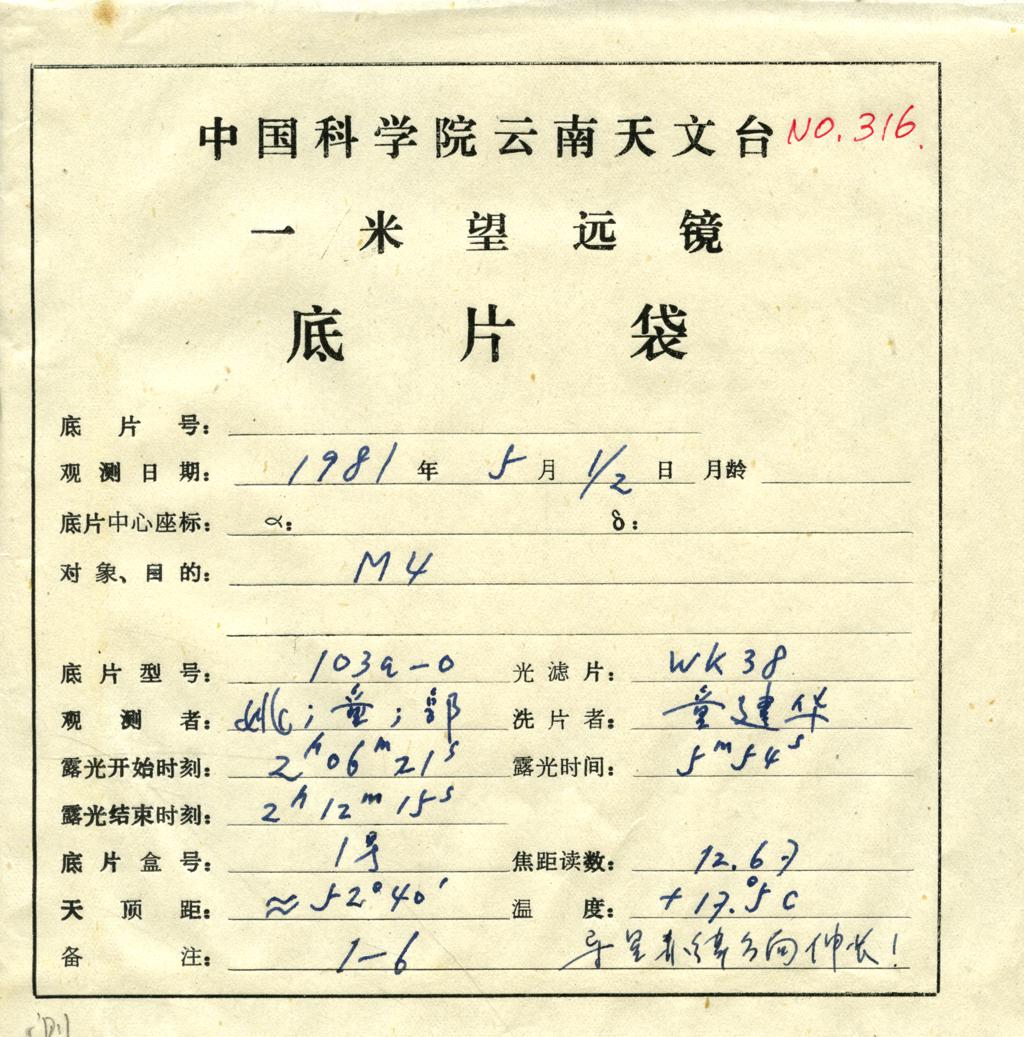 中国科学院云南天文台 NO. 316.
一米望远镜
底片袋
底片号:
观测日期: 1981 年 5 月 1/2 日 月龄
底片中心座标: α: δ:
对象、目的: M4
底片型号: 103a-O 光滤片: WK38
观测者: 姚; 童; 郭 洗片者: 童建华
露光开始时刻: 2h06m21s 露光时间: 5m54s
露光结束时刻: 2h12m15s
底片盒号: 1号 焦距读数: 12.67
天顶距: ≈52°40′ 温度: +17.°5C
备注: 1-6 导星 赤纬方向伸长!